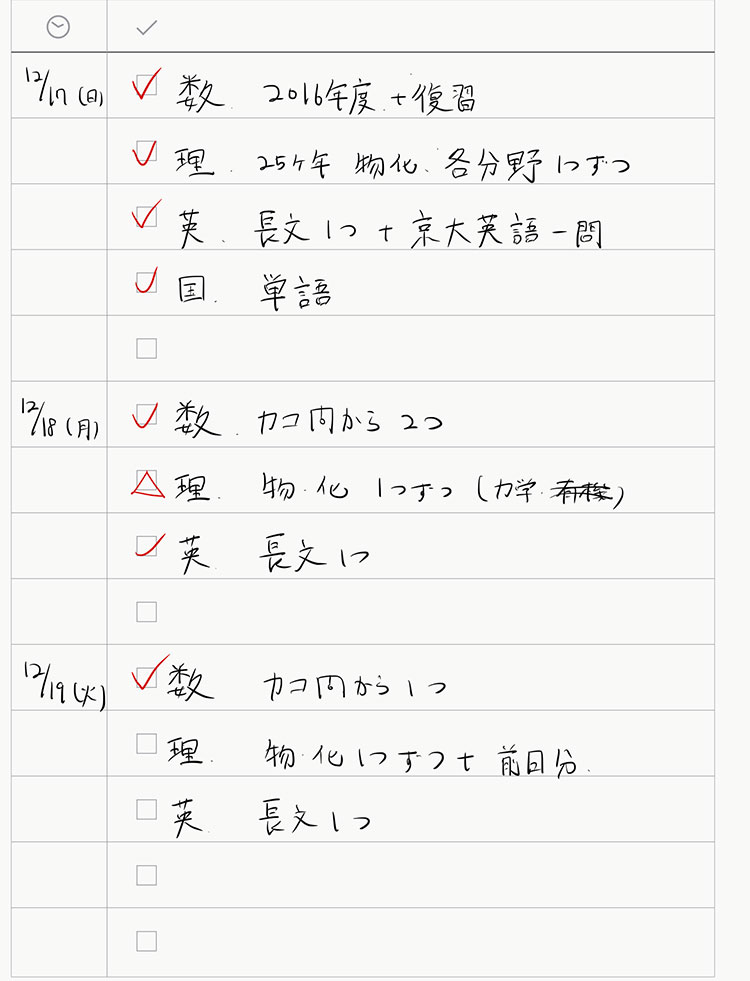 12/17(日) 数. 2016年度.+復習
理. 25ヶ年 物化、各分野1つずつ
英. 長文1つ+京大英語一問
国. 単語
12/18(月) 数. カコ問から2つ
理. 物・化 1つずつ(力学・有機)
英. 長文1つ
12/19(火) 数 カコ問から1つ
理. 物・化1つずつ+前日分.
英. 長文1つ